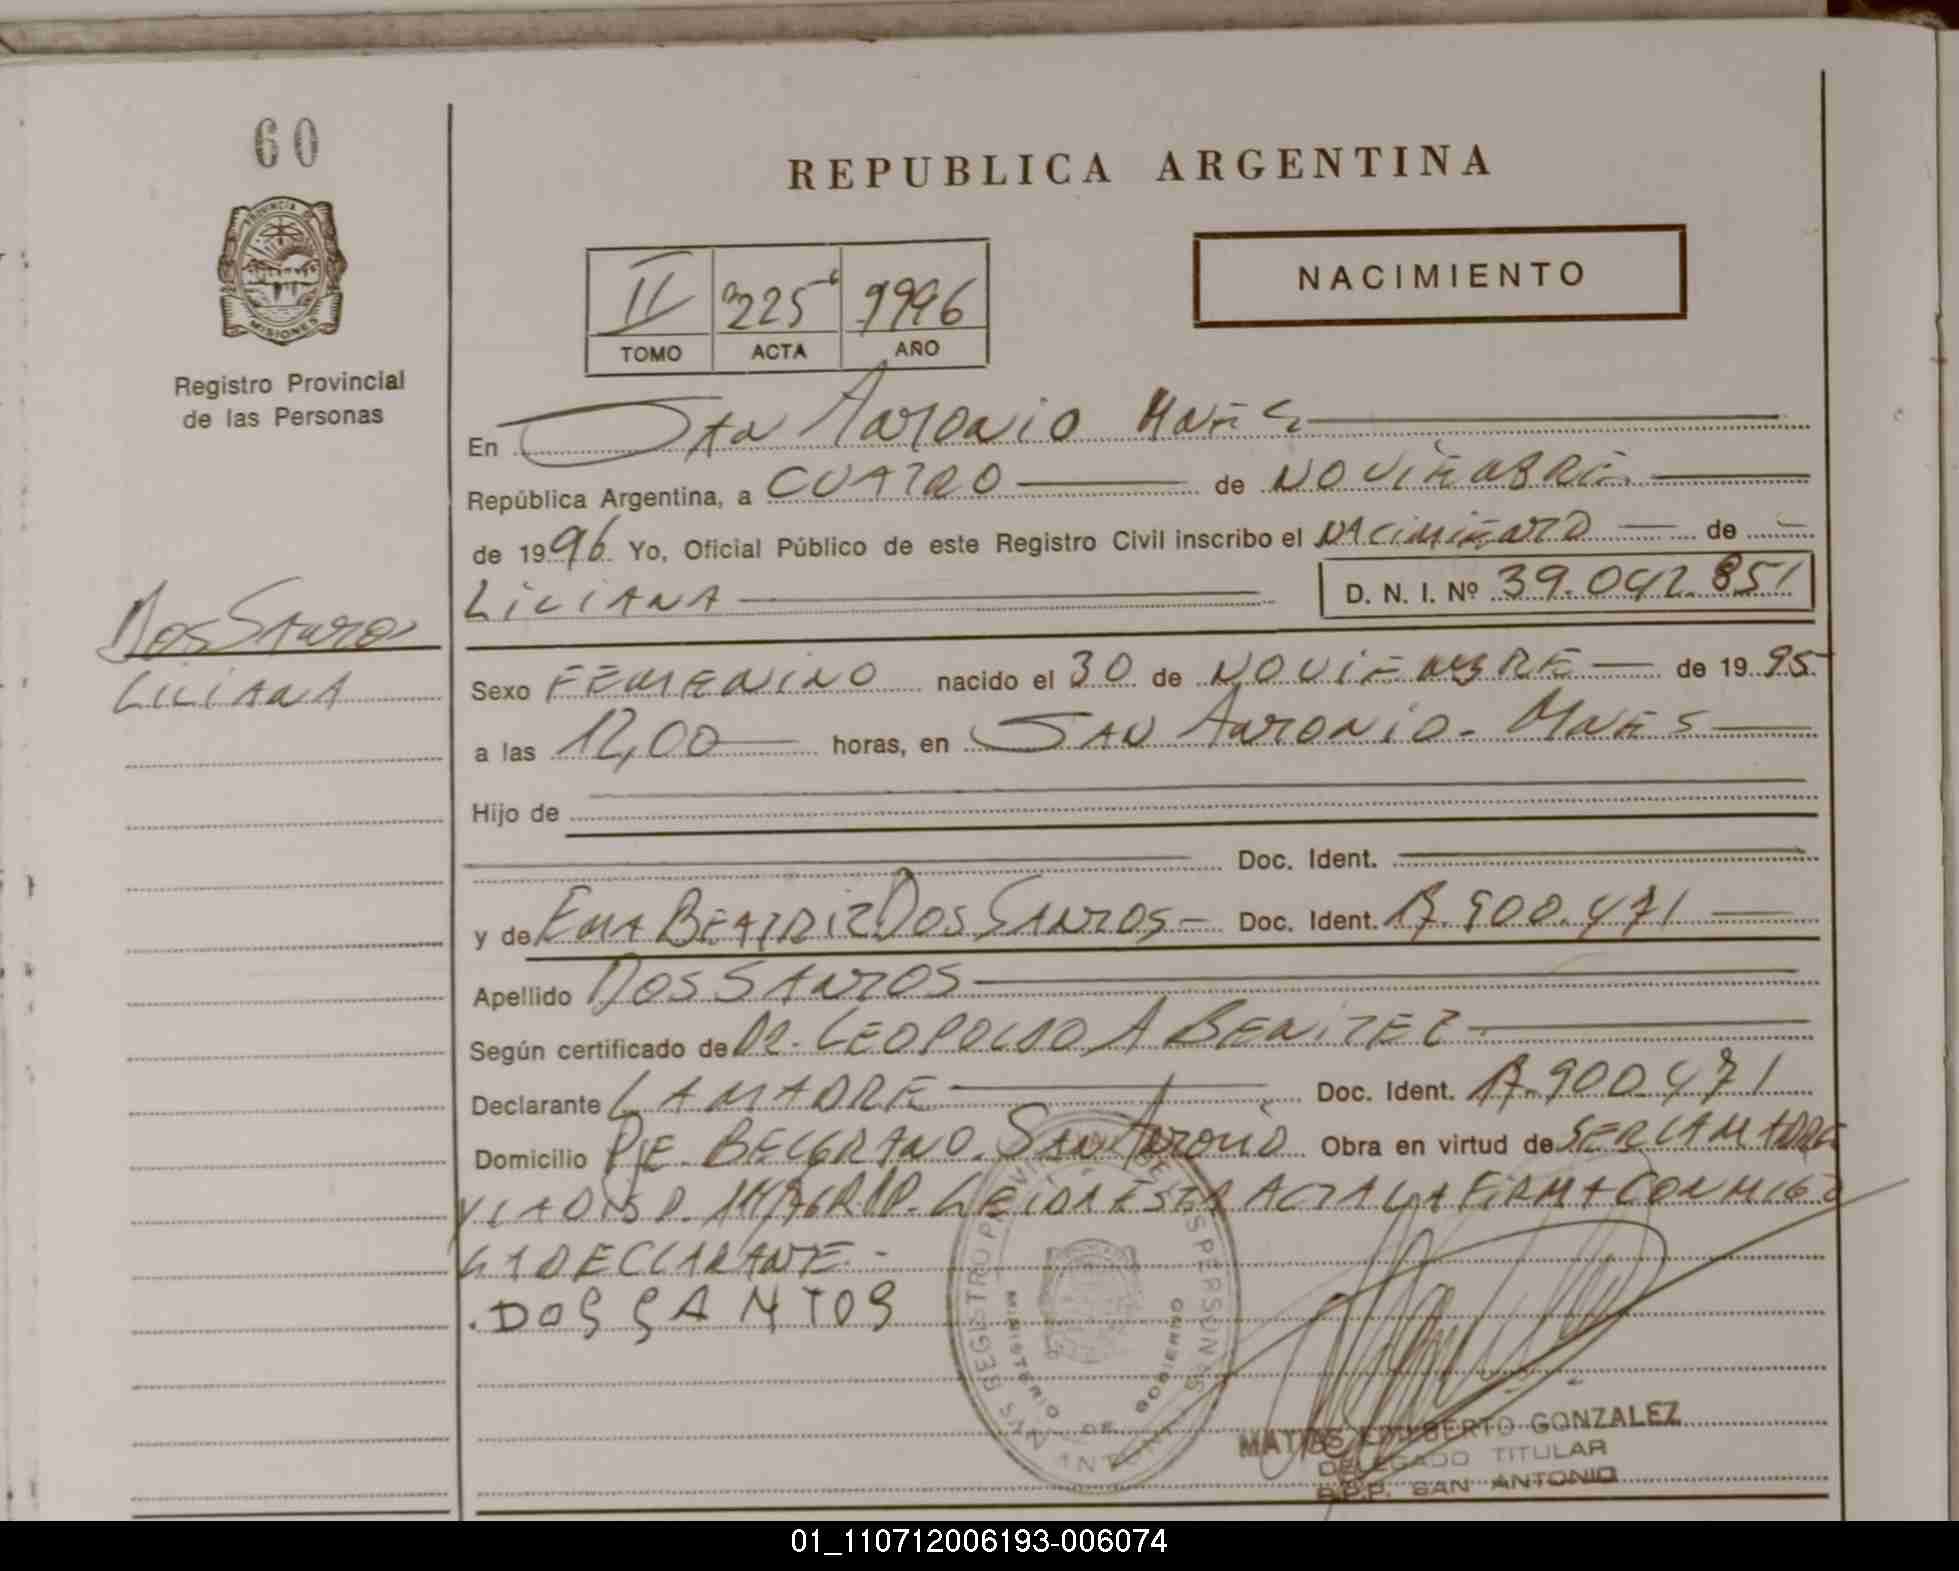 60
REPUBLICA ARGENTINA
PROVINCIA
MISIONES
Registro Provincial
de las Personas
II 225 1996
TOMO ACTA AÑO
NACIMIENTO
En San Antonio Mnes
República Argentina, a CUATRO de NOVIEMBRE
de 1996. Yo, Oficial Público de este Registro Civil inscribo el NACIMIENTO de
LILIANA D. N. I. Nº 39.042.851
Dos Santos
LILIANA
Sexo FEMENINO nacido el 30 de NOVIEMBRE de 1995
a las 12,00 horas, en SAN ANTONIO - MNES
Hijo de
Doc. Ident.
y de EMA BEATRIZ DOS SANTOS - Doc. Ident. 17.900.471
Apellido DOS SANTOS
Según certificado de DR. LEOPOLDO A BENITEZ
Declarante LA MADRE Doc. Ident. 17.900.471
Domicilio PJE. BELGRANO. SAN ANTONIO Obra en virtud de SER LA MADRE
Y LA DISP. RPP. LEIDA ESTA ACTA LA FIRMA CONMIGO
LA DECLARANTE.-
.DOS SANTOS
REGISTRO PROVINCIAL DE LAS PERSONAS
MINISTERIO DE GOBIERNO
SAN ANTONIO
GONZALEZ
DELEGADO TITULAR
R.P.P. SAN ANTONIO
01_110712006193-006074